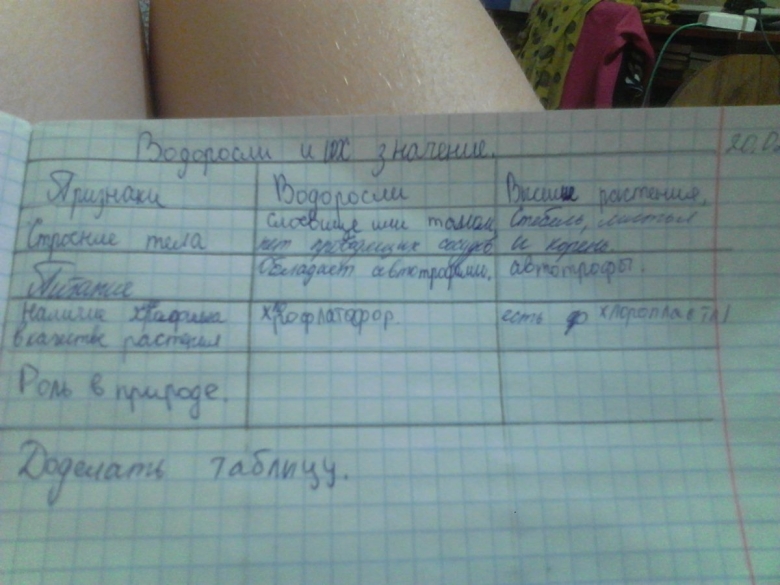 Водоросли и их значение.
20.0
Признаки Водоросли Высшие растения.
слоевище или таллом, Стебель, листья
Строение тела нет проводящих сосудов и корень.
Обладает автотрофами. автотрофы.
Питание
Наличие хрофлатофор. есть хлоропласты
в растения
Роль в природе.
Доделать таблицу.